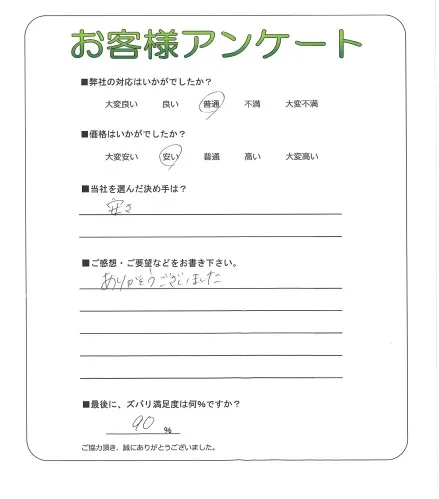 お客様アンケート
■弊社の対応はいかがでしたか？
大変良い 良い 普通 不満 大変不満
■価格はいかがでしたか？
大変安い 安い 普通 高い 大変高い
■当社を選んだ決め手は？
安さ
■ご感想・ご要望などをお書き下さい。
ありがとうございました
■最後に、ズバリ満足度は何%ですか？
90 %
ご協力頂き、誠にありがとうございました。